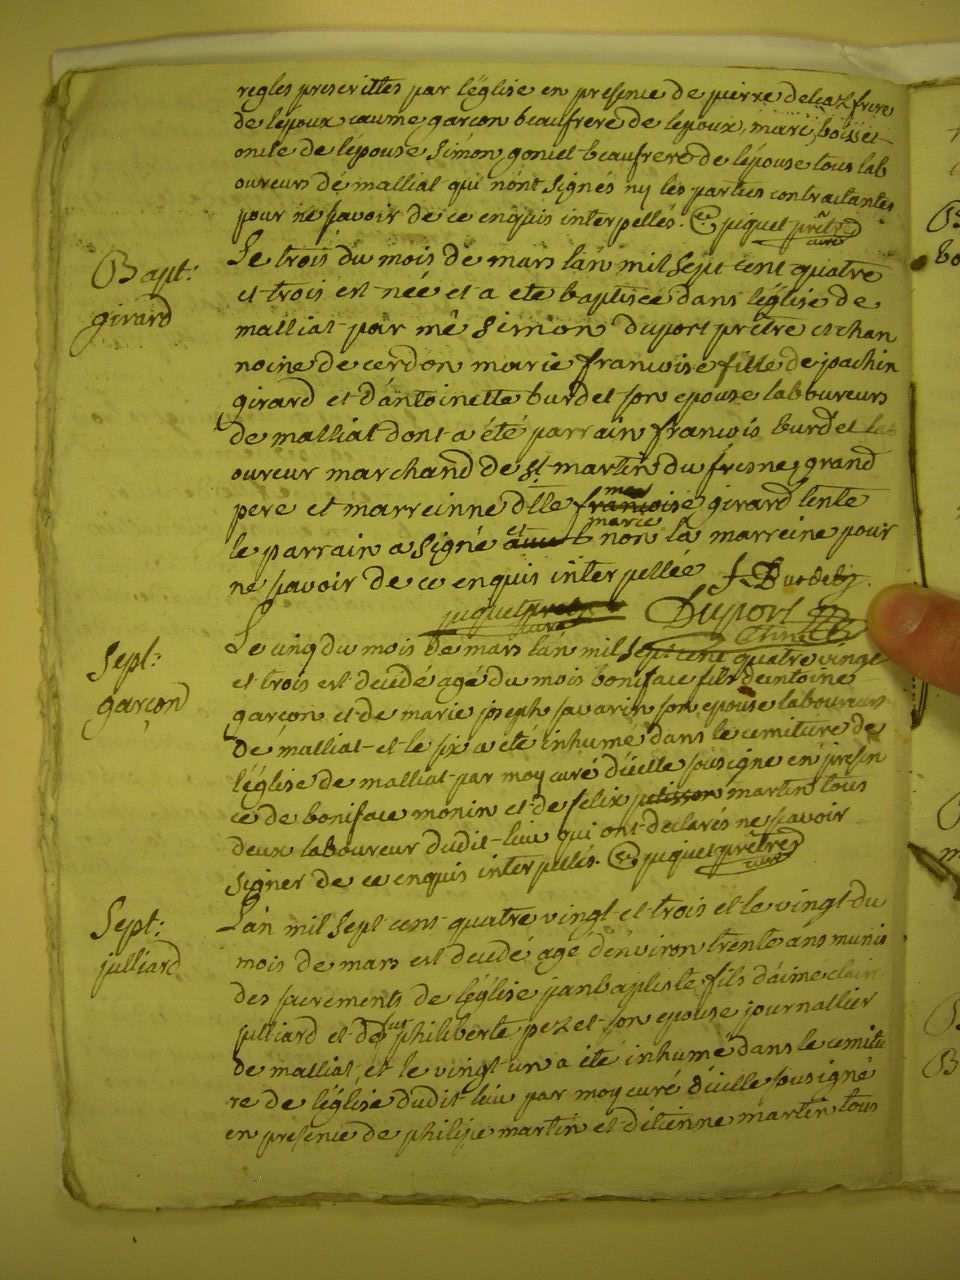 regles prescrittes par lëglise en presence de pierre delcaz frere
de lépoux caume garçon beaufrere de lepoux, marc boisset
oncle de lépouse simon goniet beaufrere de lépouse tous lab
oureurs de malliat qui nont signés ny les parties contractantes
pour ne savoir de ce enquis interpellés. juquet prêtre
curé
Bapt:
girard
Le trois du mois de mars lan mil sept cent quatre
et trois est née et a ete baptisée dans léglise de
malliat par mê simon duport prêtre et chan
noine de cerdon marie françoise fille de joachin
girard et dantoinette burdet son epouse laboureurs
de malliat dont a été parrain françois burdet lab
oureur marchand de st martin du fresne grand
pere et marreinne dlle françoise girard tente
marie
le parrain a signé et non la marreine pour
ne savoir de ce enquis interpellée f Burdet
juquet prêtre Duport
curé
Sept:
garçon
Le cinq du mois de mars lan mil sept cent quatre vingt
et trois est decedé agé du mois boniface fils dantoine
garçon et de marie joseph savarin son epouse laboureurs
de malliat et le six a été inhumé dans le cemiture de
léglise de malliat par moy curé dicelle sousigné en presen
ce de boniface monin et de felix martin tous
deux laboureur dudit lieu qui ont declarés ne savoir
signer de ce enquis interpellés. juquet prêtre
curé
Sept:
julliard
Lan mil sept cent quatre vingt et trois et le vingt du
mois de mars est decedé agé denviron trente ans munis
des sacrements de léglise janbaptiste fils daime clair
julliard et de philiberte pezet son epouse journallier
de malliat et le vingt un a été inhumé dans le cemitu
re de léglise dudit lieu par moy curé dicelle sousigné
en presence de philipe martin et détienne martin tous